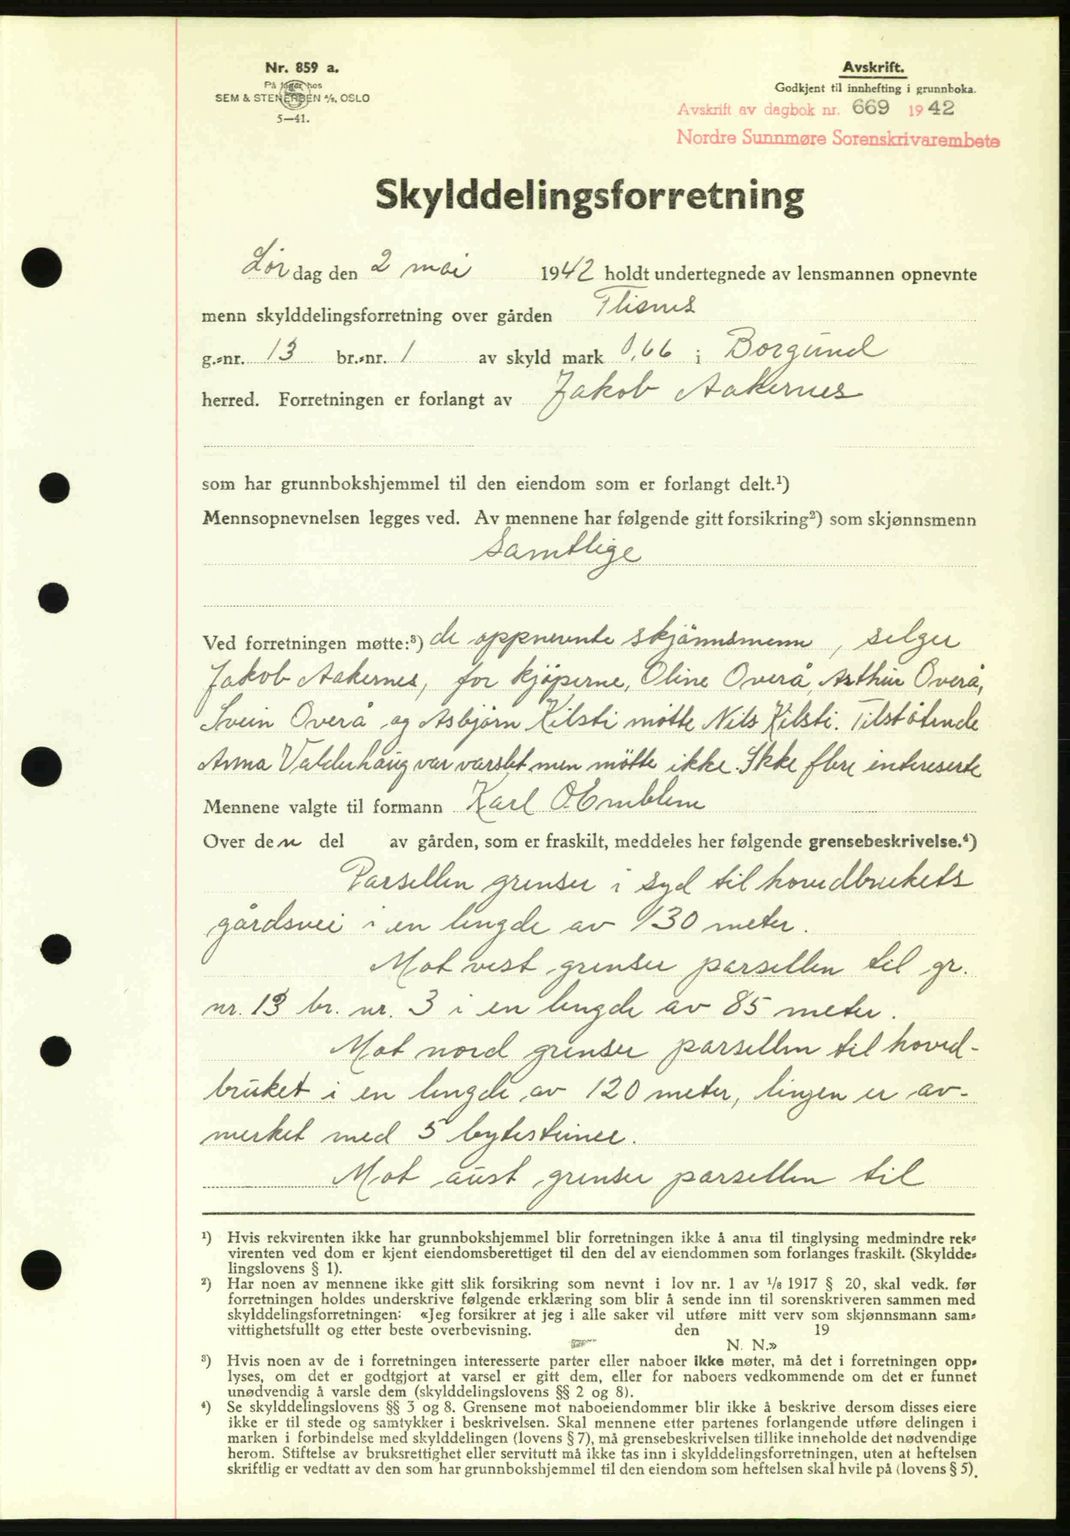 Nr. 859 a.
På lager hos
SEM & STENERSEN A/S, OSLO
5—41.
Avskrift.
Godkjent til innhefting i grunnboka.
Avskrift av dagbok nr. 669 1942
Nordre Sunnmøre Sorenskrivarembete
Skylddelingsforretning
Lørdag den 2 mai 1942 holdt undertegnede av lensmannen opnevnte
menn skylddelingsforretning over gården Flisnes
g.-nr. 13 br.-nr. 1 av skyld mark 0,66 i Borgund
herred. Forretningen er forlangt av Jakob Aakernes
som har grunnbokshjemmel til den eiendom som er forlangt delt.¹)
Mennsopnevnelsen legges ved. Av mennene har følgende gitt forsikring²) som skjønnsmenn
Samtlige
Ved forretningen møtte:³) de oppnevnte skjønnsmenn, selger
Jakob Aakernes, for kjøperne, Oline Overå, Arthur Overå,
Svein Overå og Asbjørn Kilsti møtte Nils Kilsti. Tilstøtende
Anna Valderhaug var varslet men møtte ikke. Ikke flere intereserte
Mennene valgte til formann Karl O. Emblem
Over den del av gården, som er fraskilt, meddeles her følgende grensebeskrivelse.⁴)
Parsellen grenser i syd til hovedbrukets
gårdsvei i en lengde av 130 meter.
Mot vest grenser parsellen til gr.
nr. 13 br. nr. 3 i en lengde av 85 meter.
Mot nord grenser parsellen til hoved-
bruket i en lengde av 120 meter, linjen er av-
merket med 5 bytesteiner.
Mot aust grenser parsellen til
¹) Hvis rekvirenten ikke har grunnbokshjemmel blir forretningen ikke å anta til tinglysing medmindre rek-
virenten ved dom er kjent eiendomsberettiget til den del av eiendommen som forlanges fraskilt. (Skyldde-
lingslovens § 1).
²) Har noen av mennene ikke gitt slik forsikring som nevnt i lov nr. 1 av ¹/₈ 1917 § 20, skal vedk. før
forretningen holdes underskrive følgende erklæring som blir å sende inn til sorenskriveren sammen med
skylddelingsforretningen: «Jeg forsikrer at jeg i alle saker vil utføre mitt verv som skjønnsmann sam-
vittighetsfullt og etter beste overbevisning. den 19
N. N.»
³) Hvis noen av de i forretningen interesserte parter eller naboer ikke møter, må det i forretningen opp-
lyses, om det er godtgjort at varsel er gitt dem, eller for naboers vedkommende om det er funnet
unødvendig å varsle dem (skylddelingslovens §§ 2 og 8).
⁴) Se skylddelingslovens §§ 3 og 8. Grensene mot naboeiendommer blir ikke å beskrive dersom disses eiere
ikke er til stede og samtykker i beskrivelsen. Skal mennene etter partenes forlangende utføre delingen i
marken i forbindelse med skylddelingen (lovens § 7), må grensebeskrivelsen tillike inneholde det nødvendige
herom. Stiftelse av bruksrettighet eller servitutt må ikke tas inn i skylddelingsforretningen, uten at heftelsen
skriftlig er vedtatt av den som har grunnbokshjemmel til den eiendom som heftelsen skal hvile på (lovens § 5).